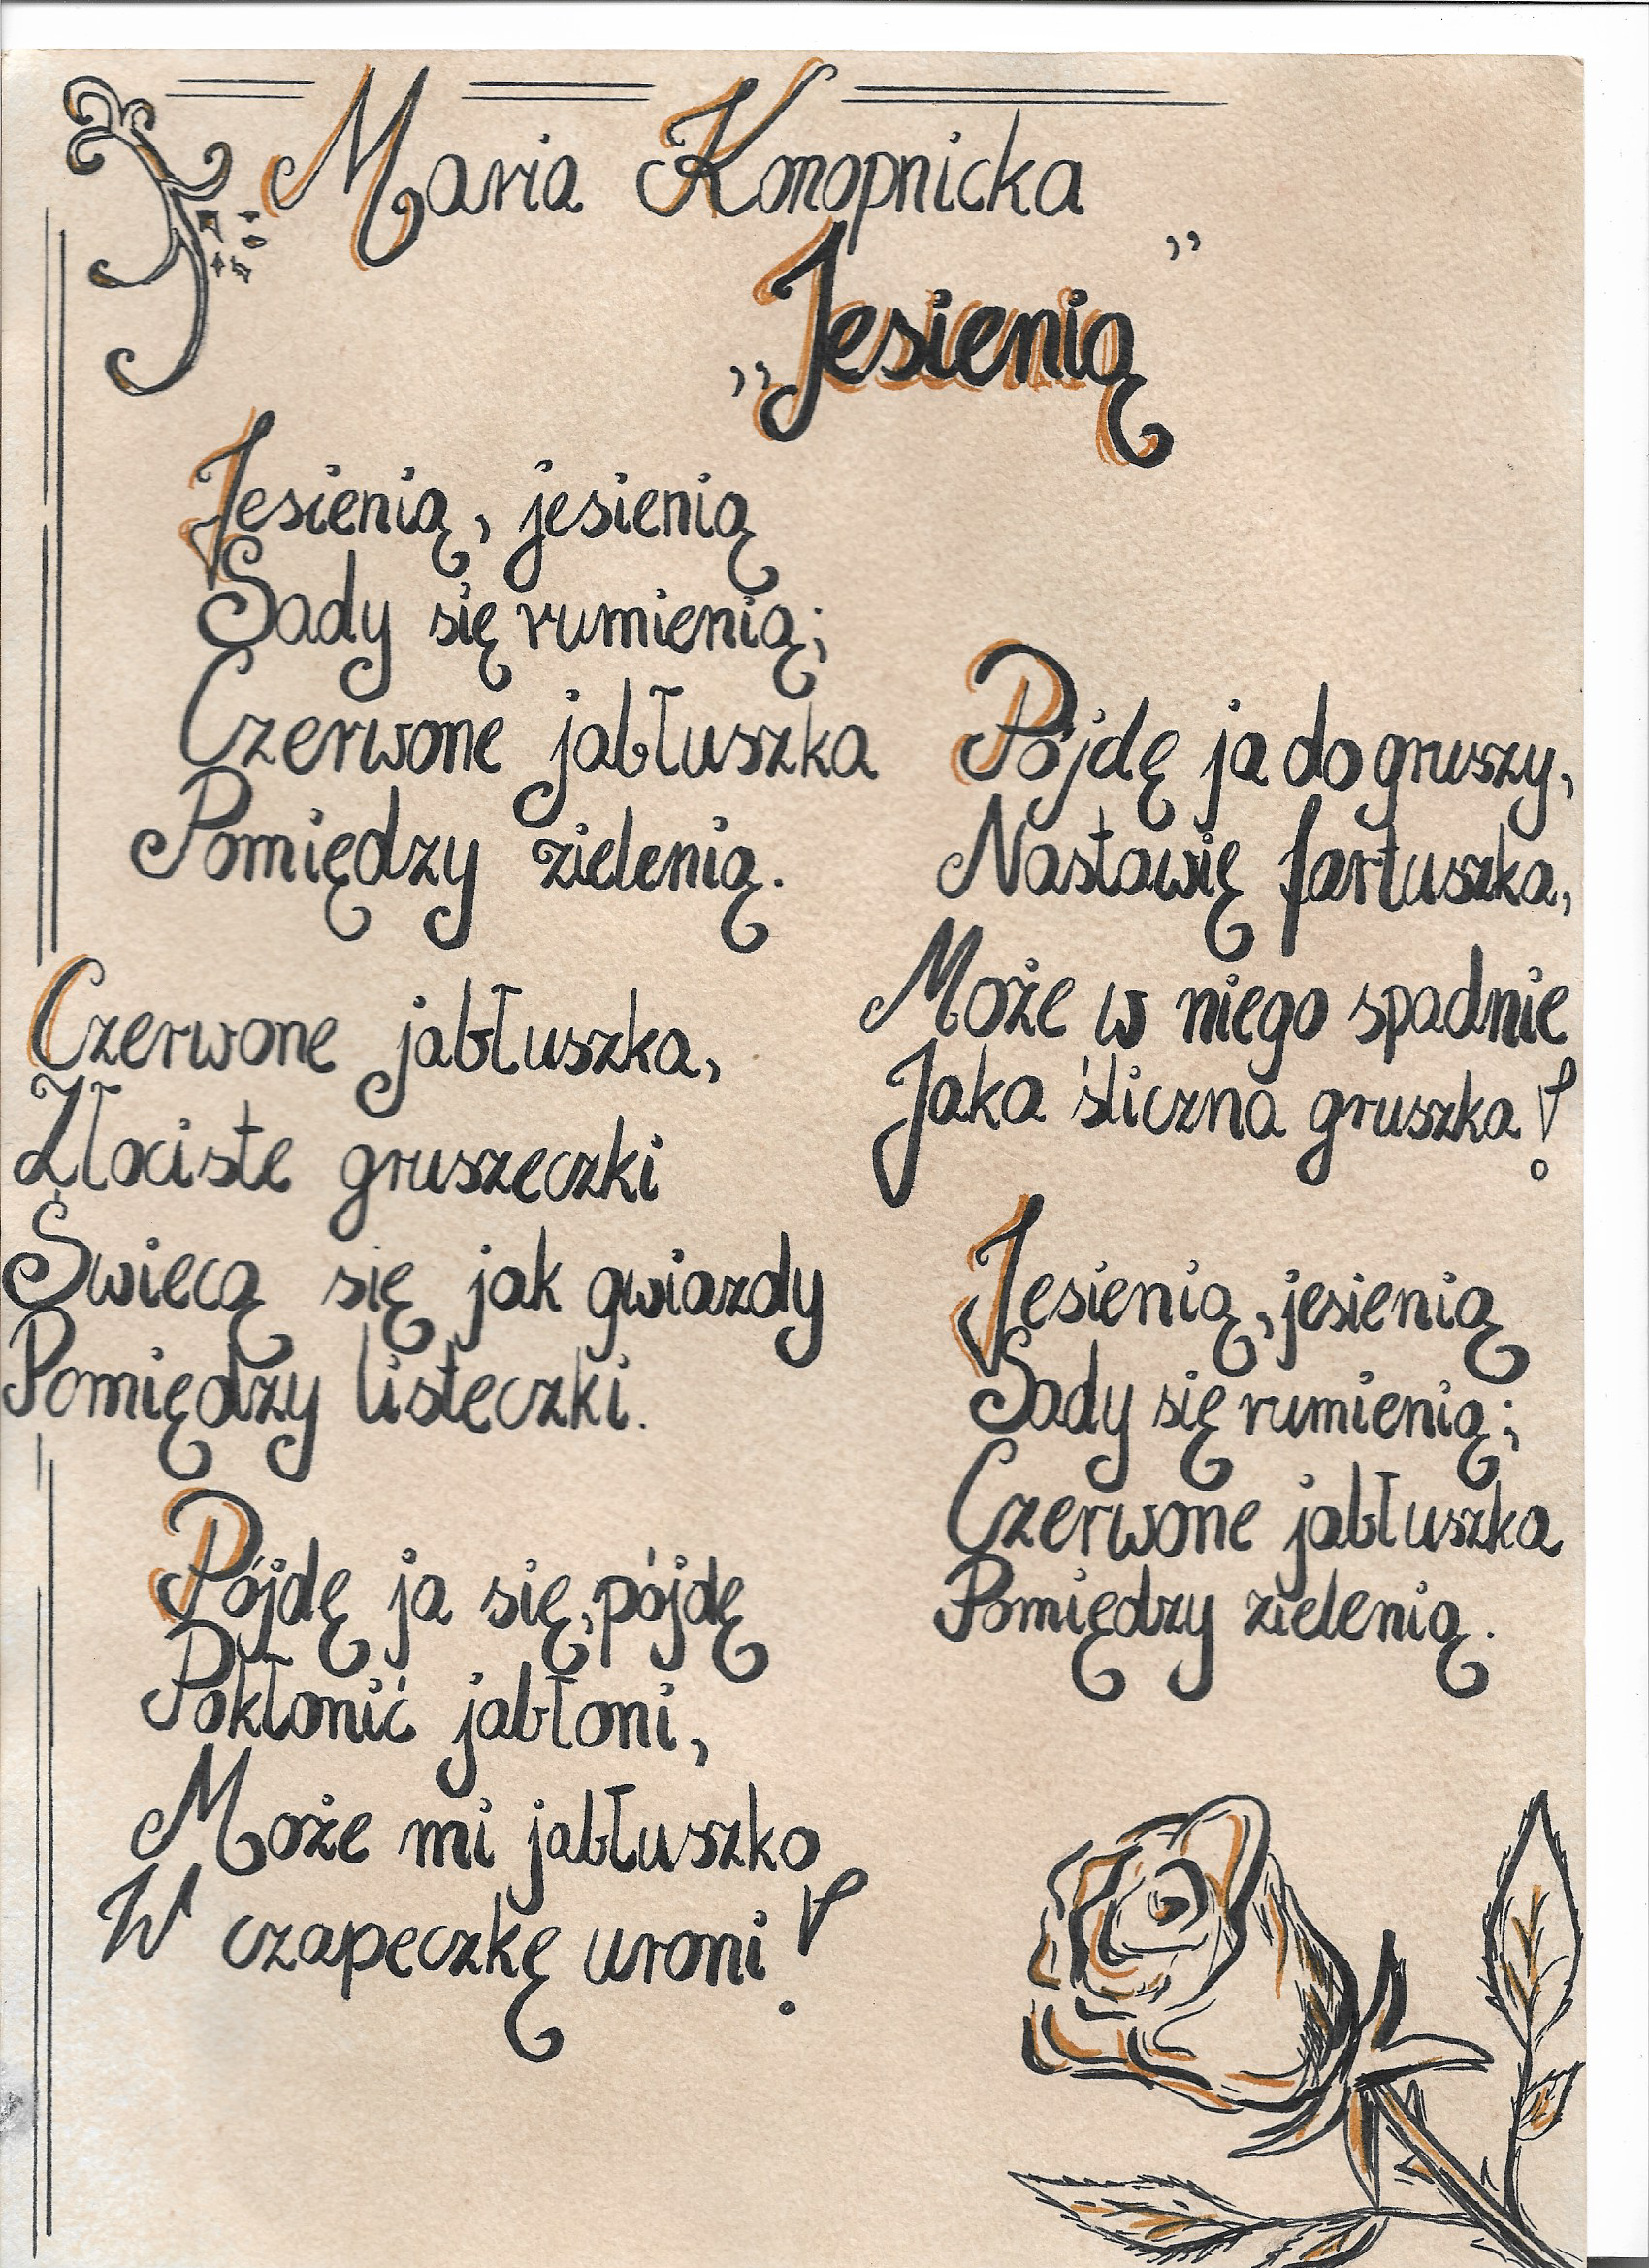 Maria Konopnicka
„Jesienią”
Jesienią, jesienią
Sady się rumienią;
Czerwone jabłuszka
Pomiędzy zielenią.
Czerwone jabłuszka,
Złociste gruszeczki
Świecą się jak gwiazdy
Pomiędzy listeczki.
Pójdę ja się, pójdę
Pokłonić jabłoni,
Może mi jabłuszko
W czapeczkę uroni!
Pójdę ja do gruszy,
Nastawię fartuszka,
Może w niego spadnie
Jaka śliczna gruszka!
Jesienią, jesienią
Sady się rumienią;
Czerwone jabłuszka
Pomiędzy zielenią.